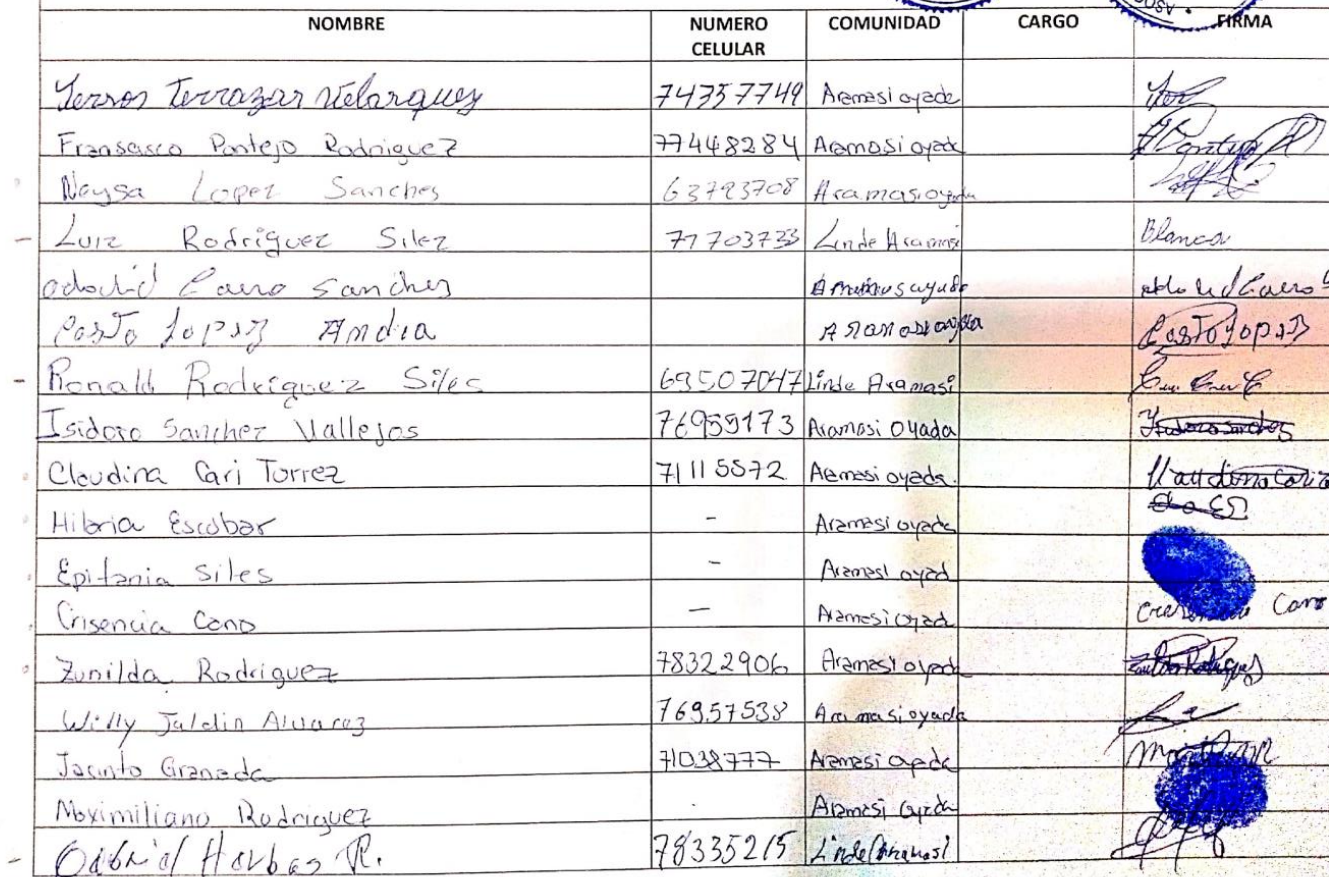 NOMBRE NUMERO CELULAR COMUNIDAD CARGO FIRMA
Terrazas 74357749 Aramasi oyade
Fransasco Pontejo Rodriguez 77448284 Aramasi oyade
Neysa Lopez Sanches 63793708 Aramasi oyada
Luiz Rodriguez Silez 77703733 Linde Aramasi Blanca
Cano Sanchez
Casto Lopez Andia Casto Lopez
Ronald Rodriguez Siles 69507047 Linde Aramasi
Isidoro Sanchez Vallejos 76959173 Aramasi Oyada
Claudina Cari Torrez 71115572 Aramasi oyada. Claudina Cari
Hilaria Escobar - Aramasi oyada
Epifania Siles - Aramasi oyad
Crisencia Cano - Aramasi oyada Cano
Zunilda Rodriguez 78322906 Aramasi oyada
Willy Jaldin Alvarez 76957538 Aramasi oyada
Jacinto Granada 71038777 Aramasi oyada
Maximiliano Rodriguez Aramasi oyada
R. 78335215 Linde Aramasi